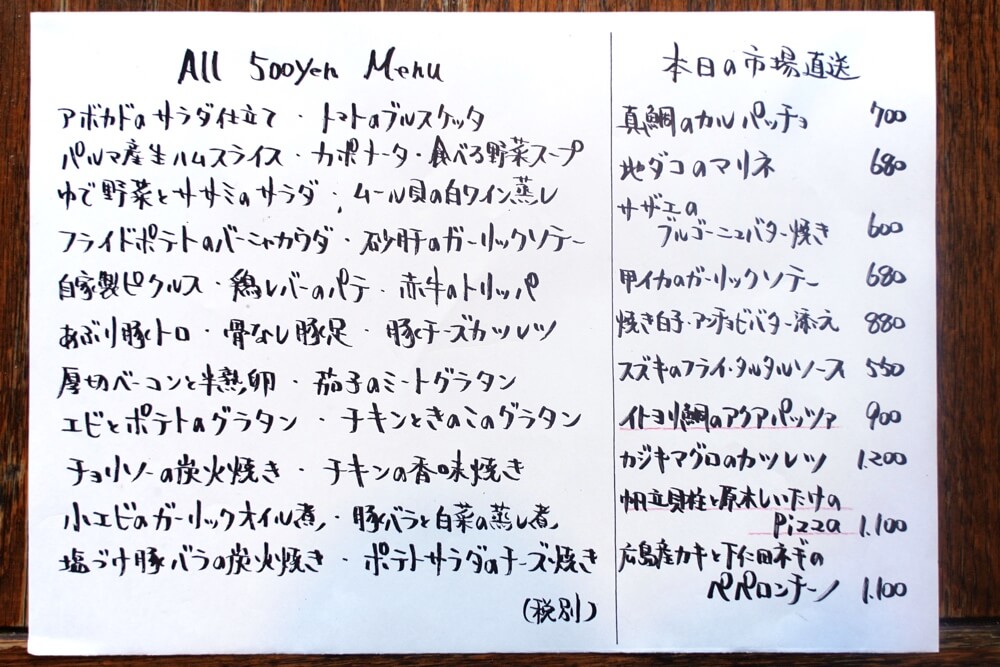 All 500yen Menu
アボカドのサラダ仕立て・トマトのブルスケッタ
パルマ産生ハムスライス・カポナータ・食べる野菜スープ
ゆで野菜とササミのサラダ・ムール貝の白ワイン蒸し
フライドポテトのバーニャカウダ・砂肝のガーリックソテー
自家製ピクルス・鶏レバーのパテ・赤牛のトリッパ
あぶり豚トロ・骨なし豚足・豚チーズカツレツ
厚切ベーコンと半熟卵・茄子のミートグラタン
エビとポテトのグラタン・チキンときのこのグラタン
チョリソーの炭火焼き・チキンの香味焼き
小エビのガーリックオイル煮・豚バラと白菜の蒸し煮
塩づけ豚バラの炭火焼き・ポテトサラダのチーズ焼き
(税別)
本日の市場直送
真鯛のカルパッチョ 700
地ダコのマリネ 680
サザエの
ブルゴーニュバター焼き 600
甲イカのガーリックソテー 680
焼き白子・アンチョビバター添え 880
スズキのフライ・タルタルソース 550
イトヨリ鯛のアクアパッツァ 900
カジキマグロのカツレツ 1.200
帆立貝柱と原木しいたけの
Pizza 1.100
広島産カキと下仁田ネギの
ペペロンチーノ 1.100